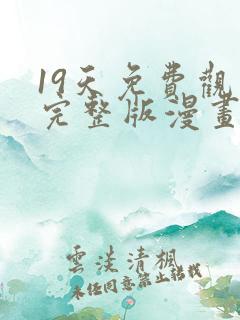 19天免費觀
完整版漫畫
雲淡清楓
未經同意禁止轉載